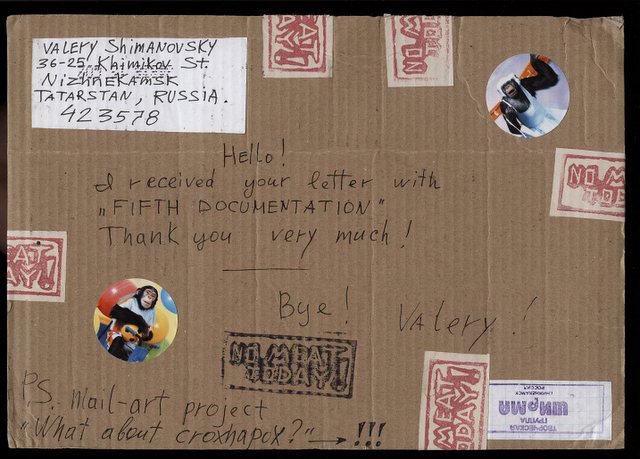 VALERY SHIMANOVSKY
36-25, Khimikov St.
NIZHNEKAMSK
TATARSTAN, RUSSIA.
423578
MEAT
DAY!
NO MEA
TOD
NO MEA
TOD
Hello!
I received your letter with
„FIFTH DOCUMENTATION"
Thank you very much!
EAT
DAY!
Bye! Valery!
NO MEAT
TODAY!
MEAT
DAY!
P.S. mail-art project
"What about croxhapox?" → !!!
ТВОРЧЕСКАЯ
ГРУППА
ШИРМА
РОССИЯ